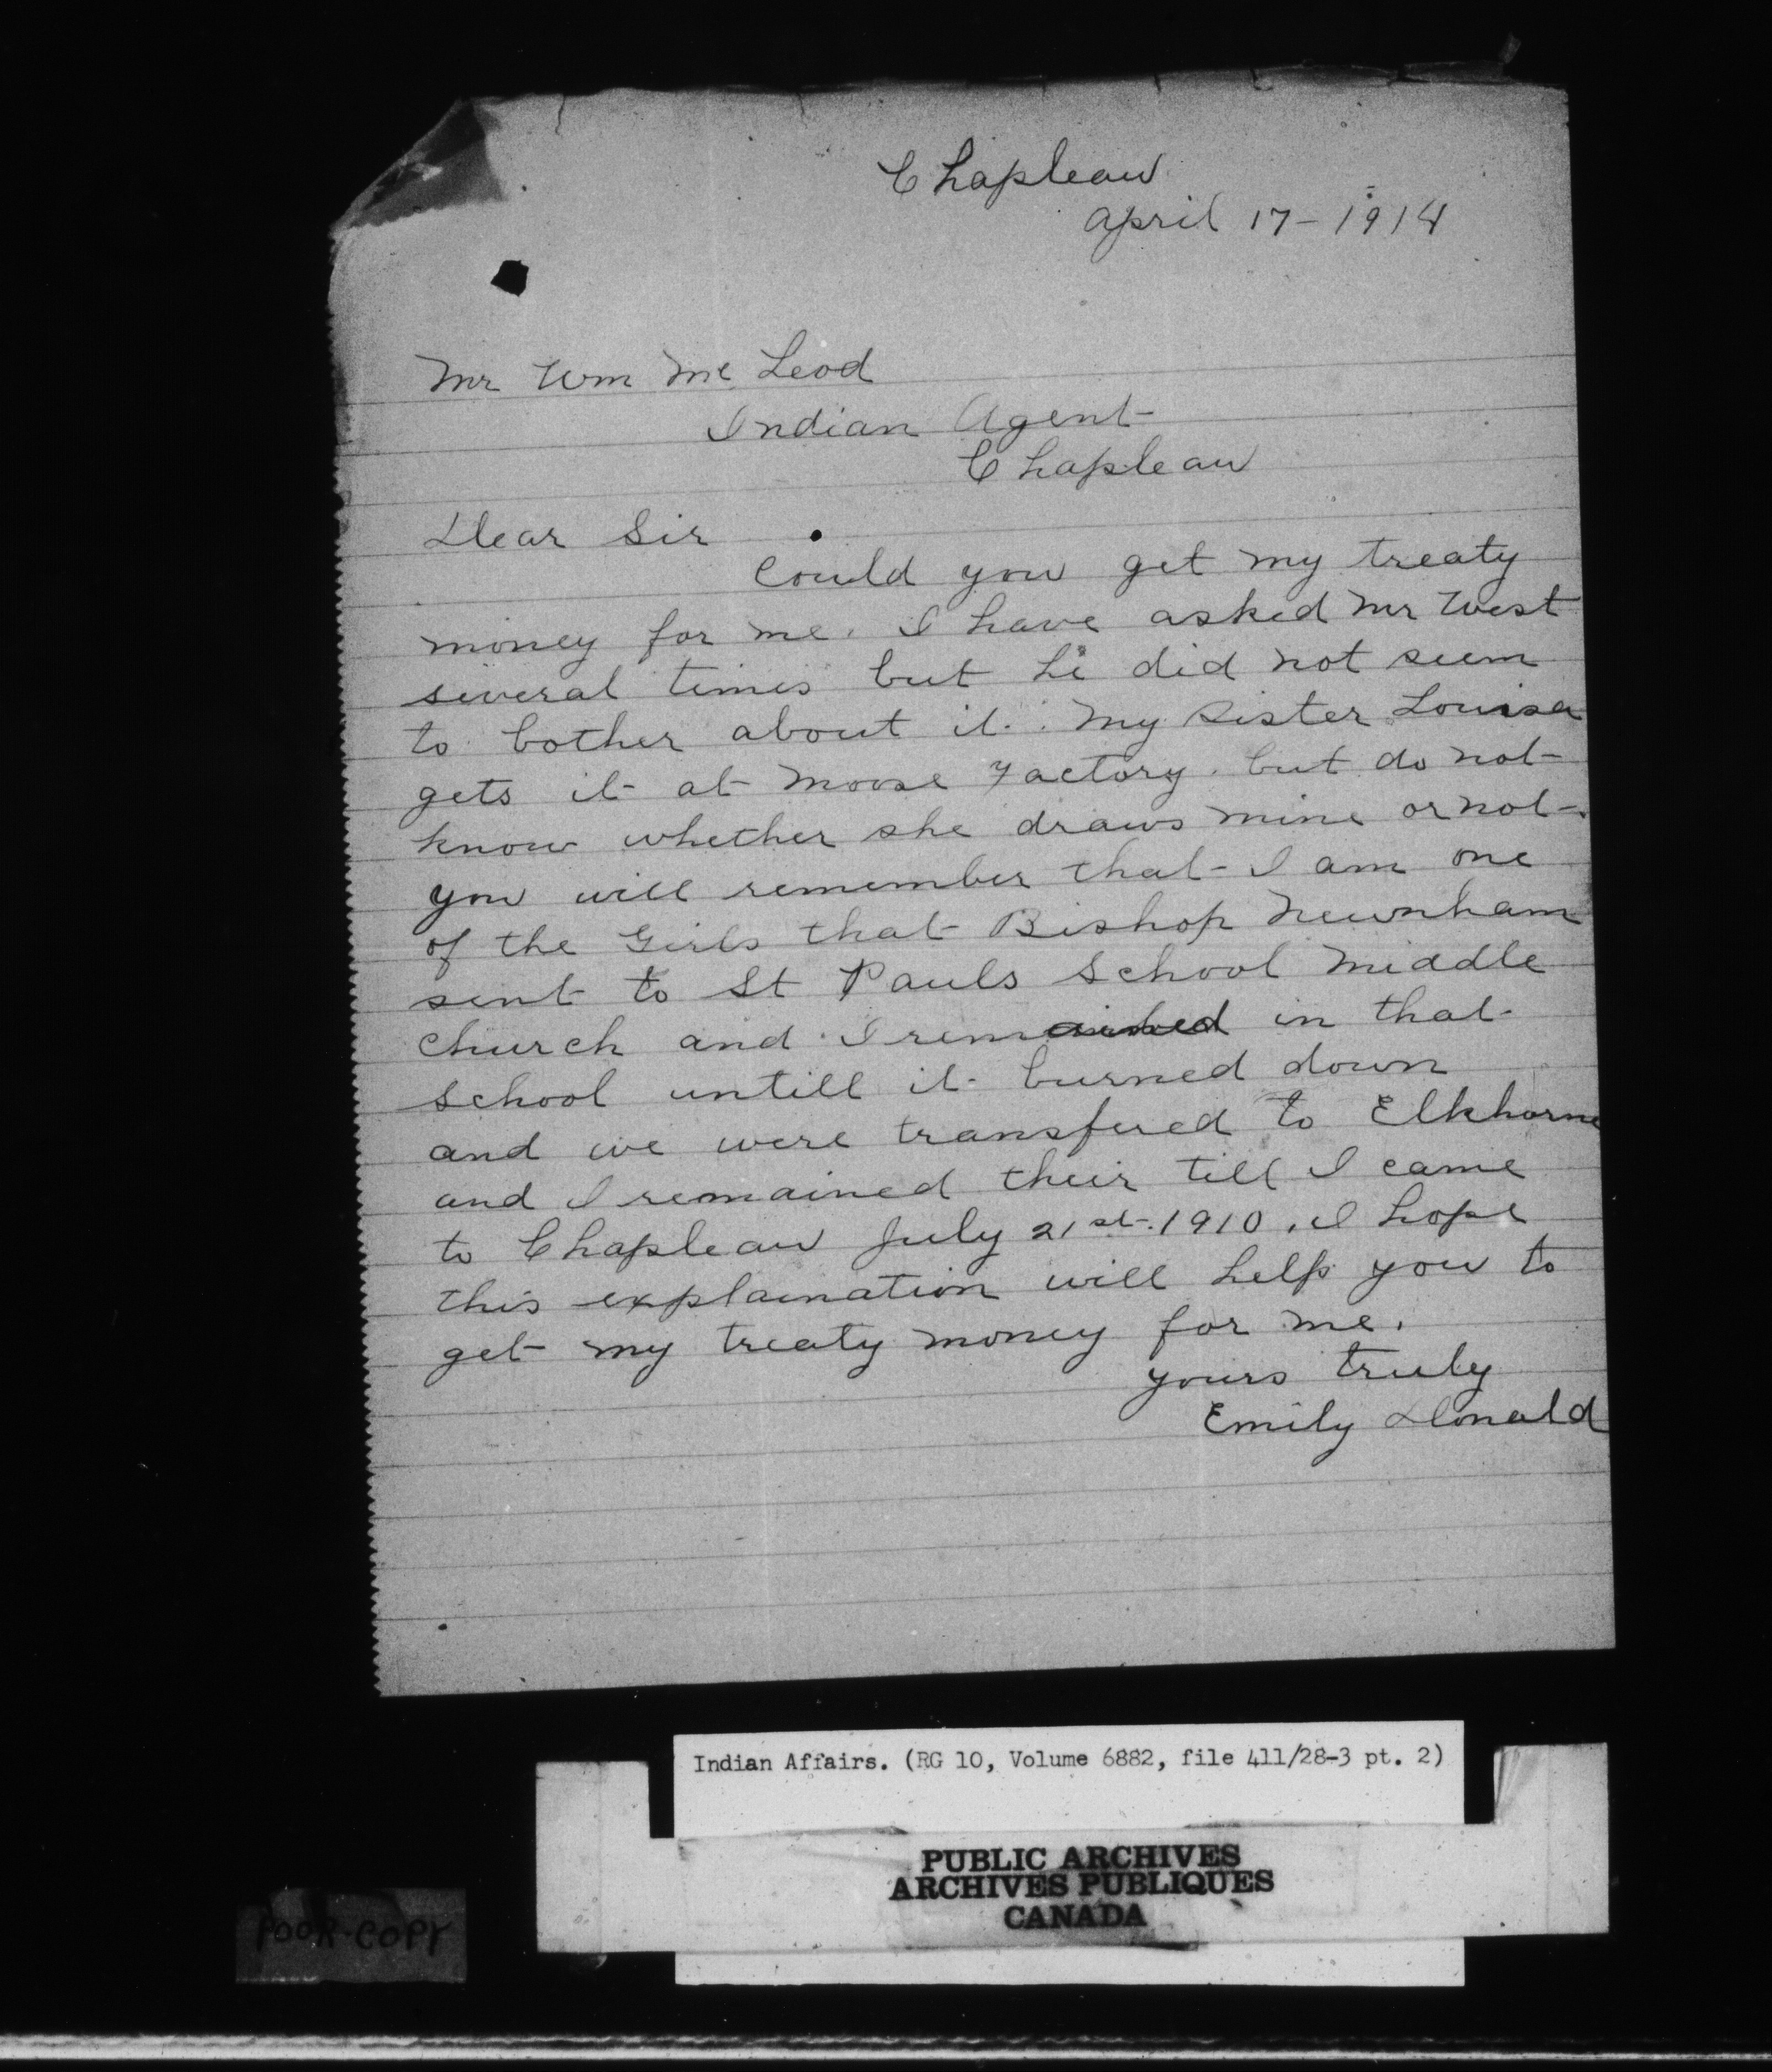 Chapleau
April 17 - 1914
Mr Wm Mc Leod
Indian Agent
Chapleau
Dear Sir
Could you get my treaty
money for me. I have asked Mr West
several times but he did not seem
to bother about it. My Sister Louisa
gets it at Moose Factory. but do not
know whether she draws mine or not.
you will remember that I am one
of the Girls that Bishop Newnham
sent to St Pauls School Middle
church and I remained in that
school untill it burned down
and we were transfered to Elkhorne
and I remained their till I came
to Chapleau July 21st. 1910. I hope
this explaination will help you to
get my treaty money for me.
yours truly
Emily Donald
Indian Affairs. (RG 10, Volume 6882, file 411/28-3 pt. 2)
PUBLIC ARCHIVES
ARCHIVES PUBLIQUES
CANADA
POOR-COPY